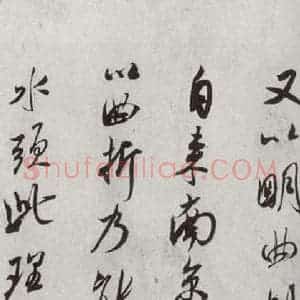 又以明曲
自来南
以曲折乃
水頭此理
Shufaziliao.com